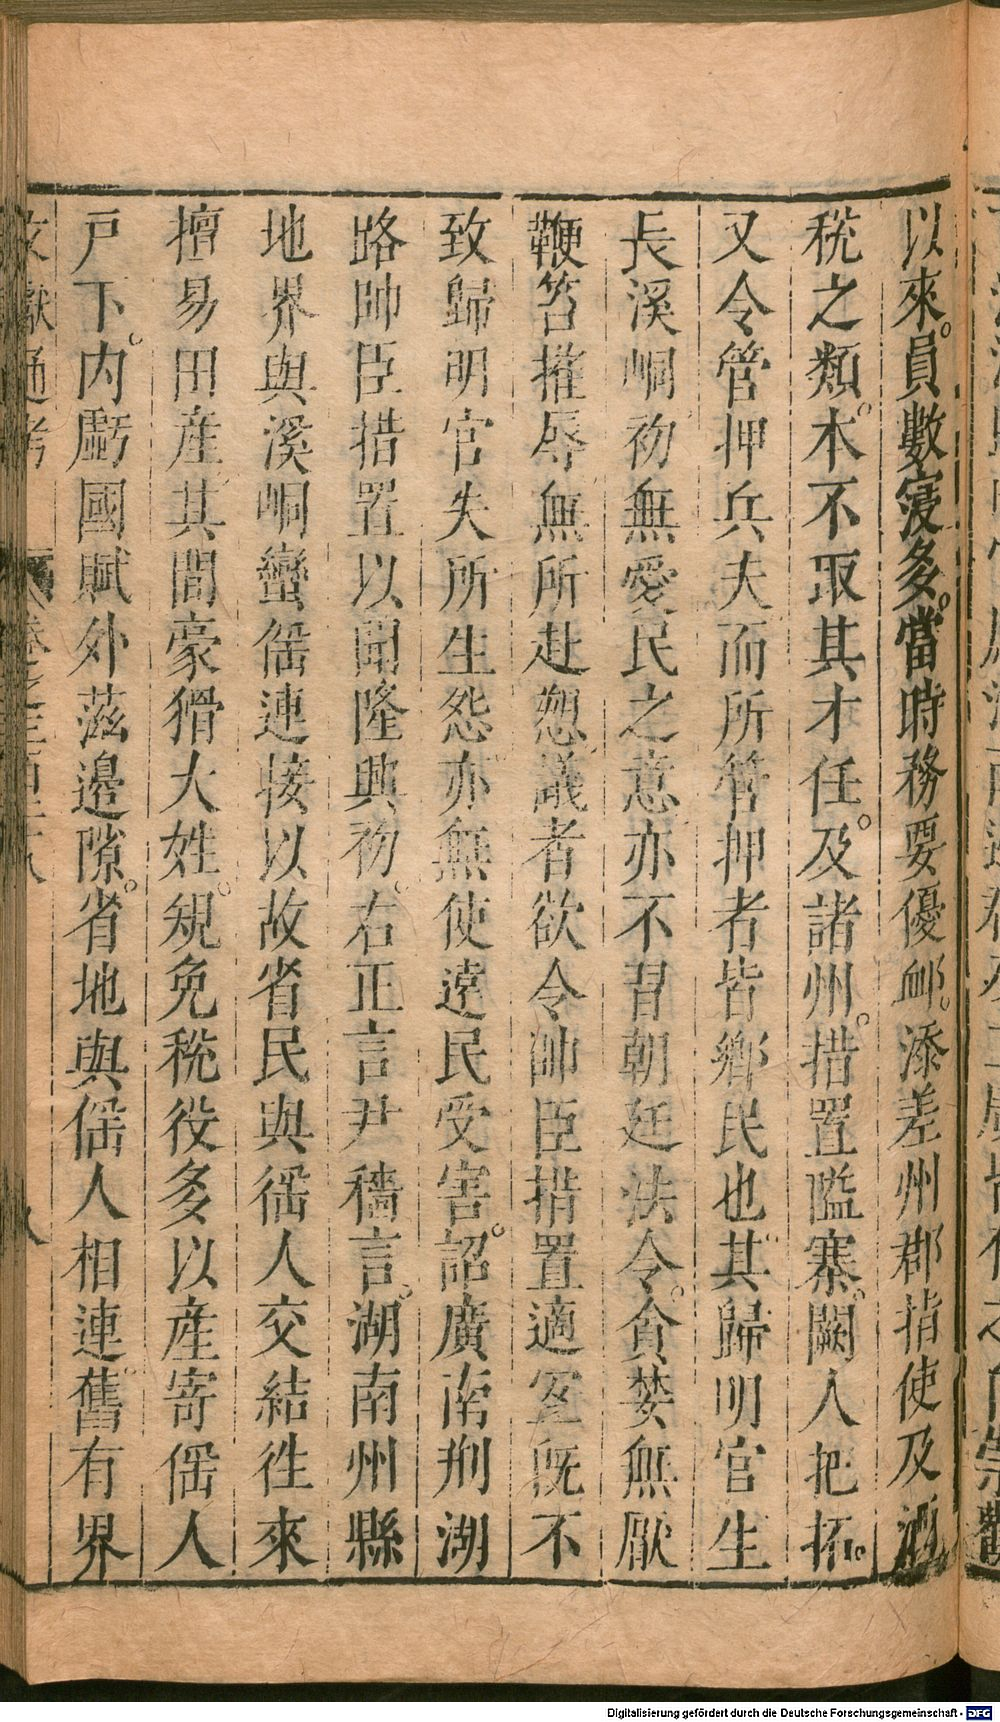 以來員數寖多當時務要優邺添差州郡指使及酒
稅之類本不取其才任及諸州措置隘寨闕人把拓
又令管押兵夫而所管押者皆鄉民也其歸明官生
長溪峒初無愛民之意亦不習朝廷法令貪婪無厭
鞭笞摧辱無所赴愬議者欲令帥臣措置適宜旣不
致歸明官失所生怨亦無使遠民受害詔廣南荆湖
路帥臣措置以聞隆興初右正言尹穡言湖南州縣
地界與溪峒蠻傜連接以故省民與徭人交結徃來
擅易田産其間豪猾大姓規免稅役多以産寄傜人
戶下内虧國賦外滋邊隙省地與傜人相連舊有界
文獻通考 卷之三百二十八 八
Digitalisierung gefördert durch die Deutsche Forschungsgemeinschaft - DFG